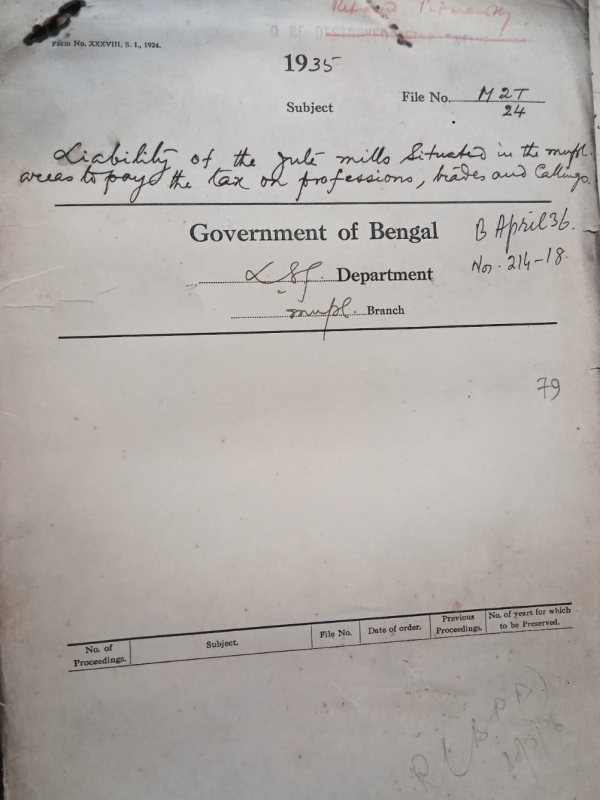 Form No. XXXVIII, S. I., 1924.
TO BE DESTROYED
1935
Subject
File No. M2T
24
Liability of the jute mills Situated in the mupl.
areas to pay the tax on professions, trades and Callings.
Government of Bengal
B April 36.
Nos. 214-18.
LSG. Department
mupl. Branch
79
No. of Proceedings. Subject. File No. Date of order. Previous Proceedings. No. of years for which to be Preserved.